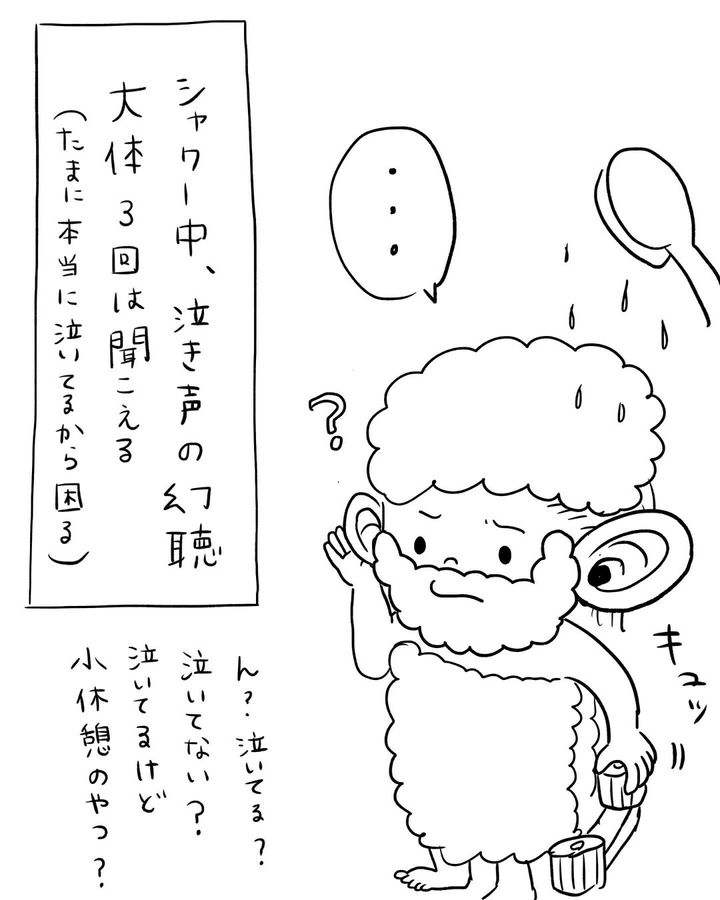 シャワー中、泣き声の幻聴
大体3回は聞こえる
(たまに本当に泣いてるから困る)
・・・
?
キュッ
ん?泣いてる?
泣いてない?
泣いてるけど
小休憩のやつ?